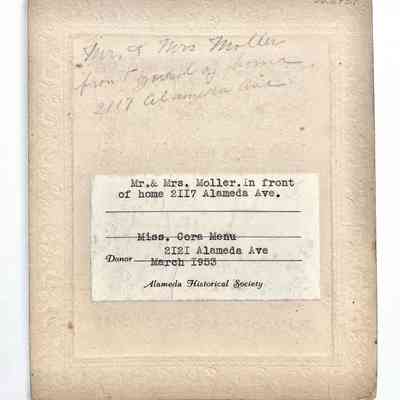 Mr. & Mrs Moller
front yard of home
2117 Alameda Ave
Mr.& Mrs. Moller.In front
of home 2II7 Alameda Ave.
Miss. Cora Menu
2I2I Alameda Ave
Donor March I953
Alameda Historical Society